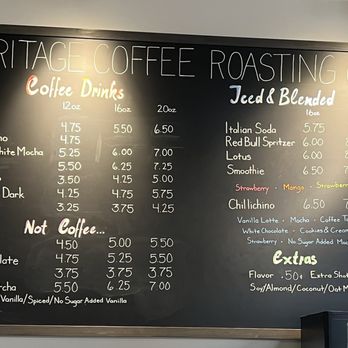 RITAGE COFFEE ROASTING
Coffee Drinks
12oz 16oz 20oz
4.75 5.50 6.50
no 4.75
hite Mocha 5.25 6.00 7.00
5.50 6.25 7.25
o 3.50 4.25 5.00
Dark 4.25 4.75 5.75
3.25 3.75 4.25
Not Coffee...
4.50 5.00 5.50
olate 4.75 5.50
3.75 3.75 3.75
rcha 5.50 6.25 7.00
Vanilla/Spiced/No Sugar Added Vanilla
Iced & Blended
16oz
Italian Soda 5.75
Red Bull Spritzer 6.00
Lotus 6.00
Smoothie 6.50
Strawberry · Mango · Strawberr
Chillichino 6.50
Vanilla Latte · Mocha · Coffee T
White Chocolate · Cookies & Cream
Strawberry · No Sugar Added Moc
Extras
Flavor .50¢ Extra Shot
Soy/Almond/Coconut/Oat M